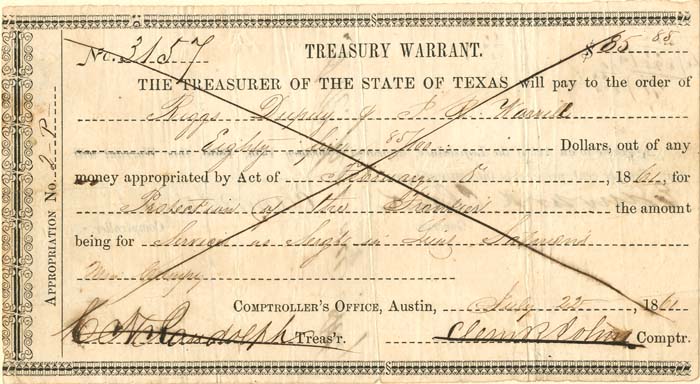 No. 3157 TREASURY WARRANT. $85 85
THE TREASURER OF THE STATE OF TEXAS will pay to the order of
Riggs &
Eighty five 85/100 Dollars, out of any
money appropriated by Act of February 8, 1861, for
Protection of the Frontier the amount
being for Service as Sergt in Lieut
COMPTROLLER'S OFFICE, Austin, July 22, 1861
C. H. Randolph Treas'r. Clem R Johns Comptr.
APPROPRIATION No.